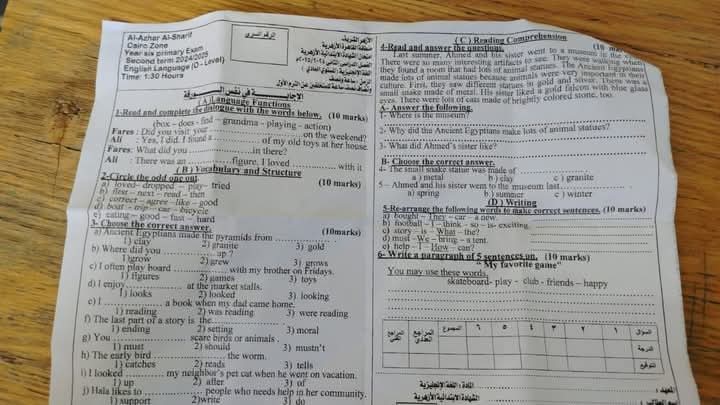 Al-Azhar Al-Sharif
Cairo Zone
Year six primary Exam
Second term 2024/2025
English Language (O - Level)
Time: 1:30 Hours
الرقم السرى
الأزهر الشريف
الإجابة في نفس الورقة
(A) Language Functions
1-Read and complete the dialogue with the words below. (10 marks)
(box - does - find - grandma - playing - action)
Fares : Did you visit your ............ on the weekend?
Ali : Yes, I did. I found a ............ of my old toys at her house.
Fares: What did you ............ in there?
Ali : There was an ............ figure. I loved ............ with it
(B) Vocabulary and Structure
2-Circle the odd one out. (10 marks)
a) loved– dropped – play– tried
b) first – next – read – then
c) correct – agree – like – good
d) boat – trip – car – bicycle
e) eating – good – fast – hard
3- Choose the correct answer. (10marks)
a) Ancient Egyptians made the pyramids from ............
1) clay 2) granite 3) gold
b) Where did you ............ up ?
1)grow 2) grew 3) grows
c) I often play board ............ with my brother on Fridays.
1) figures 2) games 3) toys
d) I enjoy ............ at the market stalls.
1) looks 2) looked 3) looking
e) I ............ a book when my dad came home.
1) reading 2) was reading 3) were reading
f) The last part of a story is the ............
1) ending 2) setting 3) moral
g) You ............ scare birds or animals .
1) must 2) should 3) mustn't
h) The early bird ............ the worm.
1) catches 2) reads 3) tells
i) I looked ............ my neighbor's pet cat when he went on vacation.
1) up 2) after 3) of
j) Hala likes to ............ people who needs help in her community.
1) support 2)write 3) do
(C) Reading Comprehension
4-Read and answer the questions. (10
Last summer, Ahmed and his sister went to a museum in the
There were so many interesting artifacts to see. They were walking when
they found a room that had lots of animal statues. The Ancient Egyptians
made lots of animal statues because animals were very important in their
culture. First, they saw different statues in gold and silver. There was a
small snake made of metal. His sister liked a gold falcon with blue glass
eyes. There were lots of cats made of brightly colored stone, too.
A- Answer the following.
1- Where is the museum?
2- Why did the Ancient Egyptians make lots of animal statues?
3- What did Ahmed's sister like?
B- Choose the correct answer.
4- The small snake statue was made of ............
a ) metal b) clay c ) granite
5 – Ahmed and his sister went to the museum last ............
a) spring b) summer c) winter
(D) Writing
5-Re-arrange the following words to make correct sentences. (10 marks)
a) bought – They – car – a new.
b) football – I – think – so – is- exciting.
c) story – is – What – the?
d) must –We – bring – a tent.
e) help – I – How– can?
6- Write a paragraph of 5 sentences on. (10 marks)
" My favorite game"
You may use these words.
skateboard- play - club - friends – happy
السؤال ١ ٢ ٣ ٤ ٥ ٦ المجموع المراجع العددى المراجع الفنى
الدرجة
التوقيع
المعهد :
المادة : اللغة الإنجليزية
الشهادة الابتدائية الأزهرية